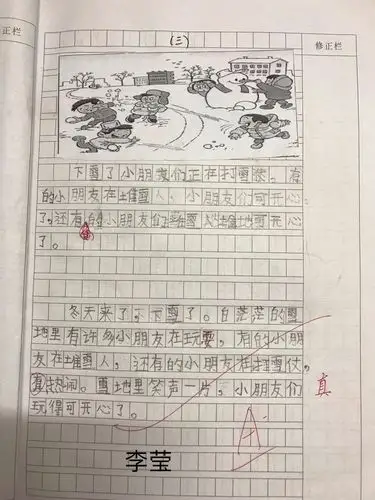 修正栏
正栏
(三)
下雪了小朋友们正在打雪仗。有
的小朋友在堆雪人,小朋友们可开心
了,还有的小朋友们
地可开心
了。
冬天来了,下雪了。白茫茫的雪
地里有许多小朋友在玩耍,有的小朋
友在堆雪人,还有的小朋友在打雪仗,
真热闹。雪地里笑声一片,小朋友们
真
玩得可开心了。
A
李莹